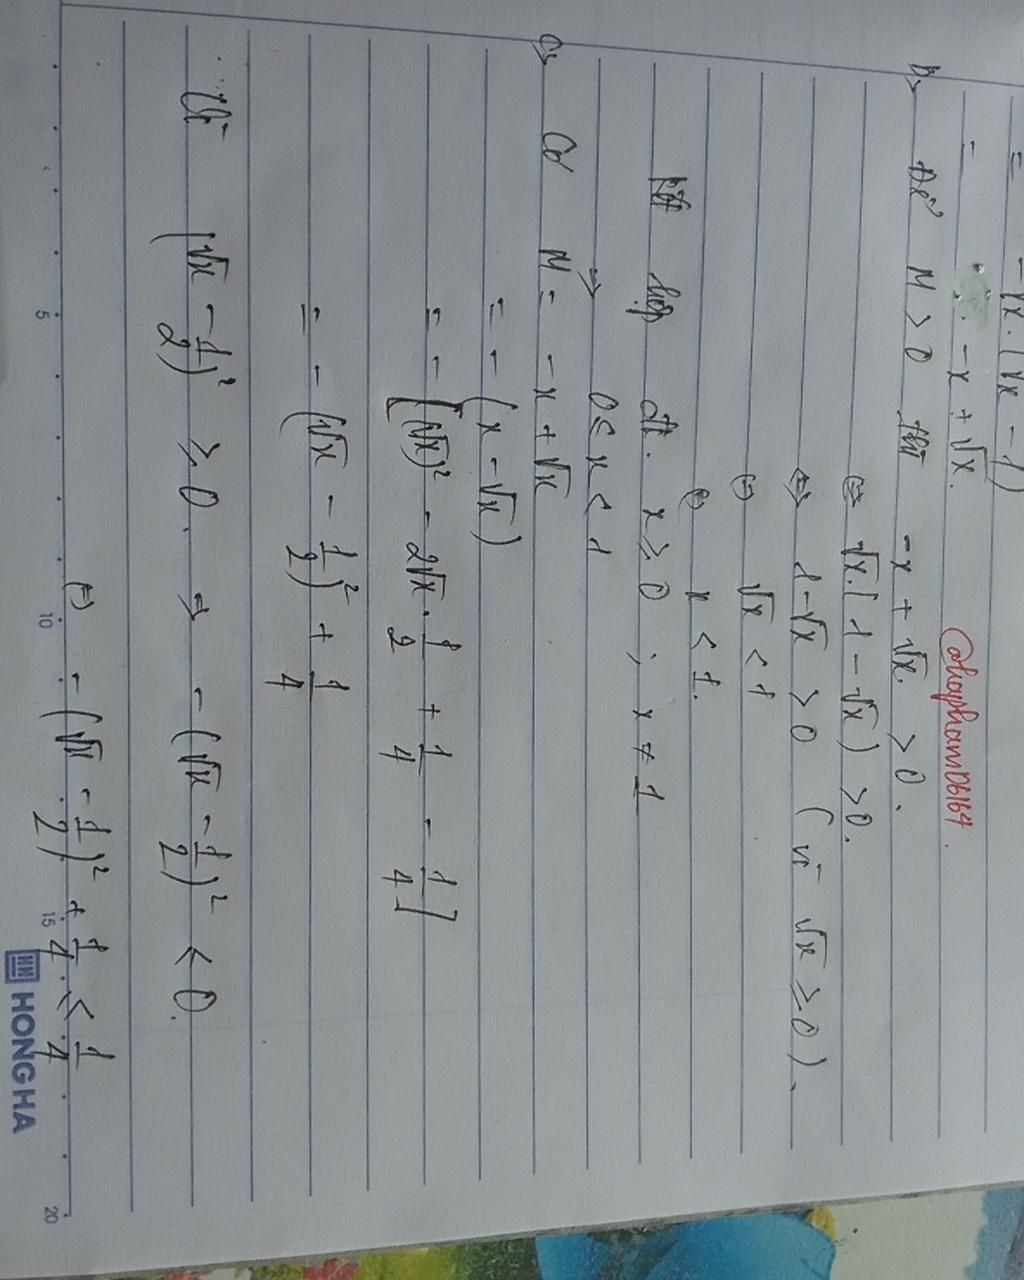 = -√x.(√x - 1)
= -x + √x.
@haphamD6164.
b, Để M > 0 thì -x + √x > 0.
(=) √x.(1 - √x) > 0.
(=) 1 - √x > 0 (vì √x ≥ 0).
(=) √x < 1
(=) x < 1.
Kết hợp đk. x ≥ 0 ; x ≠ 1
=> 0 ≤ x < 1
c, Có M = -x + √x
= - (x - √x)
= - [(√x)² - 2√x . 1/2 + 1/4 - 1/4]
= - (√x - 1/2)² + 1/4
Vì (√x - 1/2)² ≥ 0. => - (√x - 1/2)² < 0.
(=) - (√x - 1/2)² + 1/4 < 1/4
5 10 15 20
HONG HA